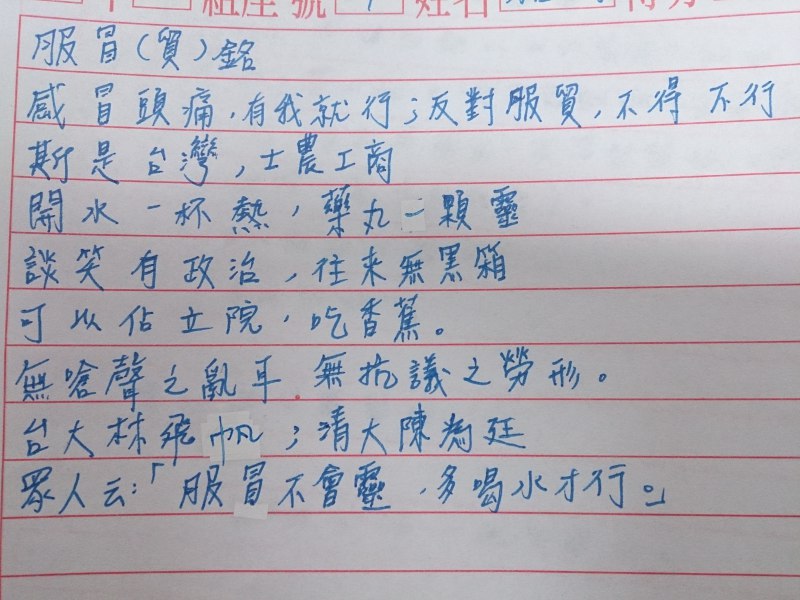 組座號 姓名
服冒(質)銘
感冒頭痛,有我就行;反對服貿,不得不行
斯是台灣,士農工商
開水一杯熱,藥丸一顆靈
談笑有政治,往来無黑箱
可以佔立院,吃香蕉。
無嗆聲之亂耳.無抗議之勞形。
台大林飛帆;清大陳為廷
眾人云:「服冒不會靈,多喝水才行。」